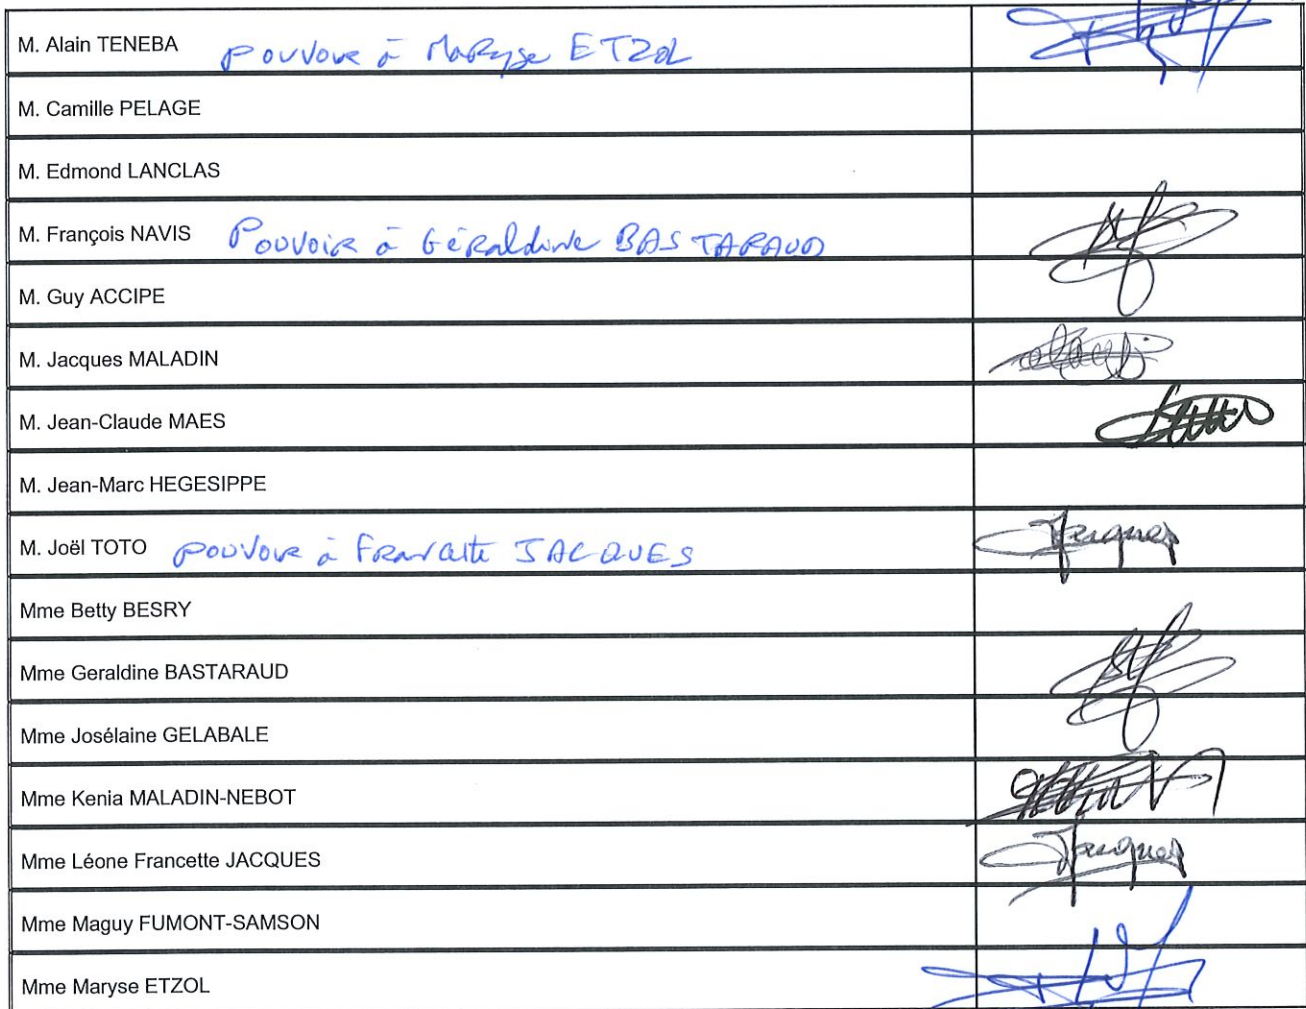 M. Alain TENEBA pouvoir à Maryse ETZOL
M. Camille PELAGE
M. Edmond LANCLAS
M. François NAVIS Pouvoir à Géraldine BASTARAUD
M. Guy ACCIPE
M. Jacques MALADIN
M. Jean-Claude MAES
M. Jean-Marc HEGESIPPE
M. Joël TOTO pouvoir à Francette JACQUES
Jacques
Mme Betty BESRY
Mme Geraldine BASTARAUD
Mme Josélaine GELABALE
Mme Kenia MALADIN-NEBOT
Mme Léone Francette JACQUES
Jacques
Mme Maguy FUMONT-SAMSON
Mme Maryse ETZOL